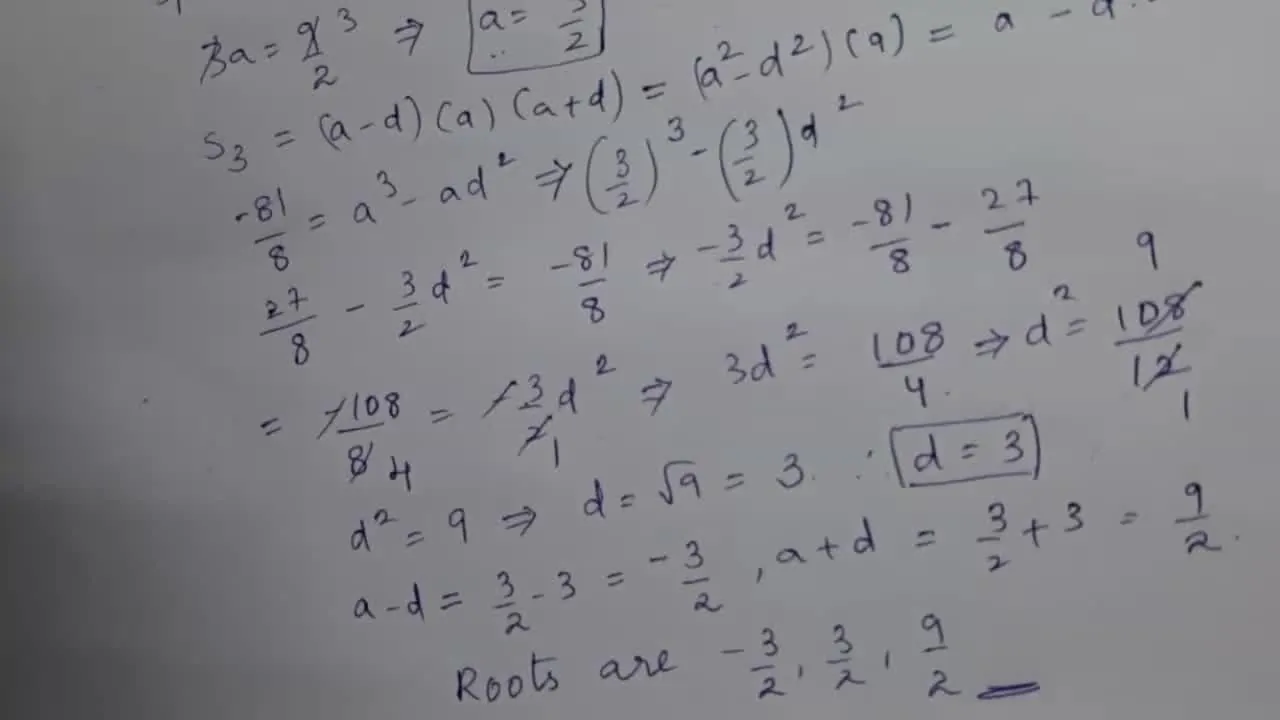 3a = 9/2 3 ⇒ a = 3/2
S₃ = (a-d) (a) (a+d) = (a² - d²) (a) = a - a
-81/8 = a³ - ad² ⇒ (3/2)³ - (3/2) d²
27/8 - 3/2 d² = -81/8 ⇒ -3/2 d² = -81/8 - 27/8
= -108/8 4 = -3/2 1 d² ⇒ 3d² = 108/4 ⇒ d² = 108/12 9 1
d² = 9 ⇒ d = √9 = 3. ∴ d = 3
a-d = 3/2 - 3 = -3/2 , a+d = 3/2 + 3 = 9/2.
Roots are -3/2, 3/2, 9/2